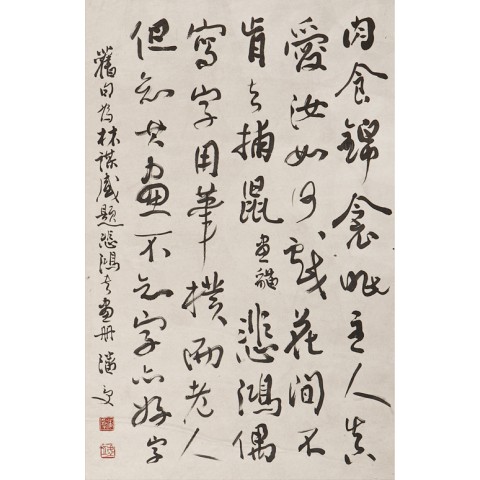 肉食錦衾眠主人真
愛汝如何戲花間不
肯去捕鼠畫貓悲鴻偶
寫字用筆樸而老人
但知其畫不知字亦好字
舊句為林謀盛題悲鴻畫冊潘受